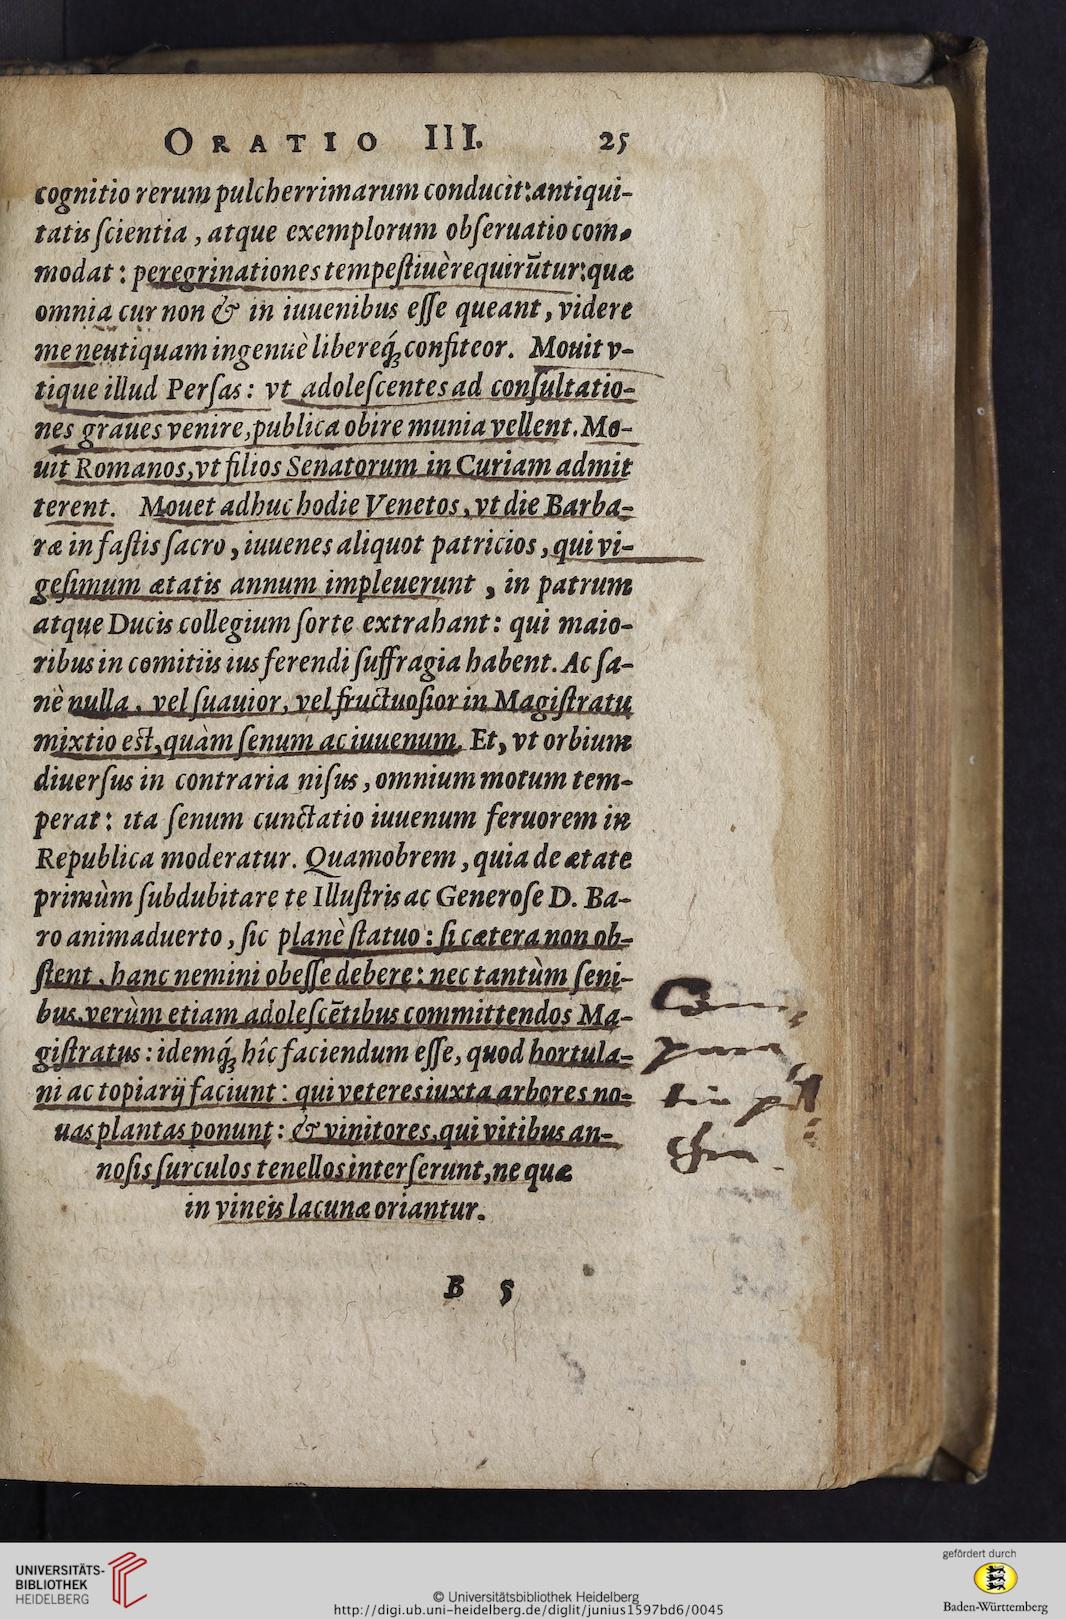 ORATIO III. 25
cognitio rerum pulcherrimarum conducit: antiqui-
tatis ſcientia, atque exemplorum obſeruatio com-
modat: peregrinationes tempeſtiuè requirũtur: quæ
omnia cur non & in iuuenibus eſſe queant, videre
me neutiquam ingenuè libereq́; confiteor. Mouit v-
tique illud Perſas: vt adoleſcentes ad conſultatio-
nes graues venire, publica obire munia vellent. Mo-
uit Romanos, vt filios Senatorum in Curiam admit
terent. Mouet adhuc hodie Venetos, vt die Barba-
ræ in faſtis ſacro, iuuenes aliquot patricios, qui vi-
geſimum ætatis annum impleuerunt, in patrum
atque Ducis collegium ſorte extrahant: qui maio-
ribus in comitiis ius ferendi ſuffragia habent. Ac ſa-
nè nulla, vel ſuauior, vel fructuoſior in Magiſtratu
mixtio eſt, quàm ſenum ac iuuenum. Et, vt orbium
diuerſus in contraria niſus, omnium motum tem-
perat: ita ſenum cunctatio iuuenum feruorem in
Republica moderatur. Quamobrem, quia de ætate
primùm ſubdubitare te Illuſtris ac Generoſe D. Ba-
ro animaduerto, ſic planè ſtatuo: ſi cætera non ob-
ſtent, hanc nemini obeſſe debere: nec tantùm ſeni-
bus, verùm etiam adoleſcẽtibus committendos Ma-
giſtratus: idemq́; hîc faciendum eſſe, quod hortula-
ni ac topiarij faciunt: qui veteres iuxta arbores no-
uas plantas ponunt: & vinitores, qui vitibus an-
noſis ſurculos tenellos interſerunt, ne quæ
in vineis lacunæ oriantur.
B 5
UNIVERSITÄTS-
BIBLIOTHEK
HEIDELBERG
© Universitätsbibliothek Heidelberg
http://digi.ub.uni-heidelberg.de/diglit/junius1597bd6/0045
gefördert durch
Baden-Württemberg